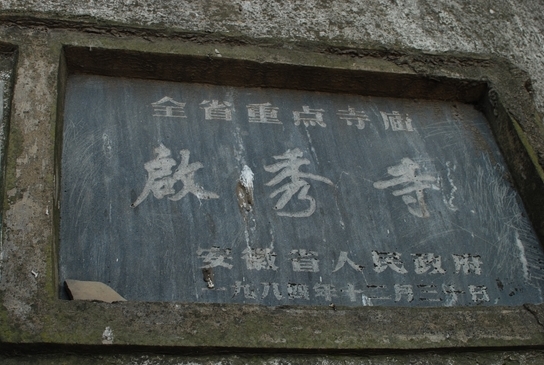 全省重点寺庙
啟秀寺
安徽省人民政府
一九八四年十二月三十日